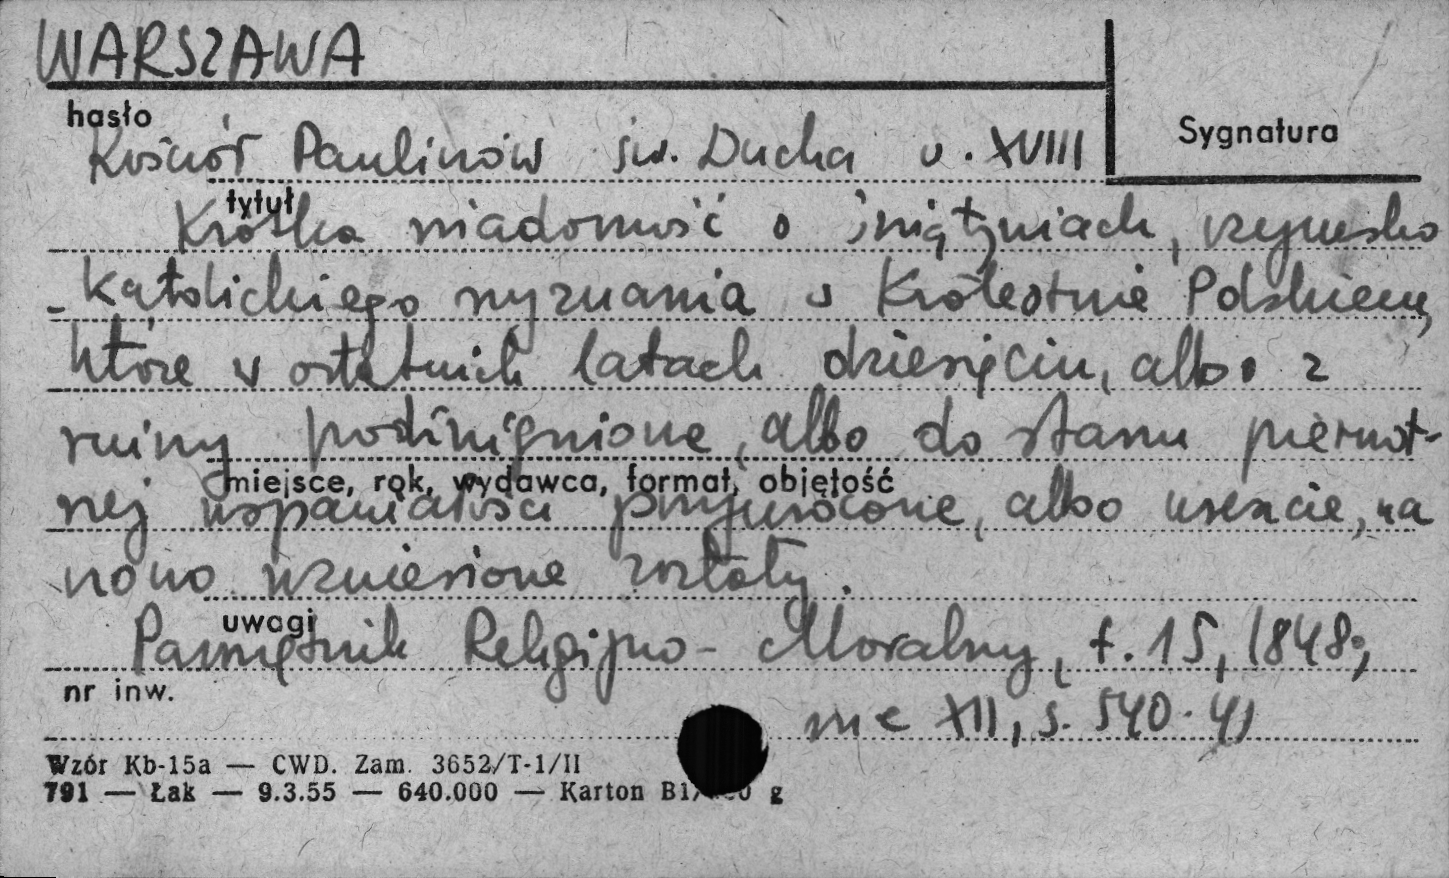 WARSZAWA
hasło
Kościół Paulinów św. Ducha w. XVIII
Sygnatura
tytuł
Krótka wiadomość o świątyniach, rzymsko
-katolickiego wyznania w Królestwie Polskiem,
które w ostatnich latach dziesięciu, albo z
ruiny podźwignione, albo do stanu pierwot-
miejsce, rok, wydawca, format, objętość
nej wspaniałości przywrócone, albo wreszcie, na
nowo wzniesione zostały.
uwagi
Pamiętnik Religijno-Moralny, t. 15, 1848;
nr inw.
XII, s. 540-41
Wzór Kb-15a — CWD. Zam. 3652/T-1/II
791 — Łak — 9.3.55 — 640.000 — Karton g